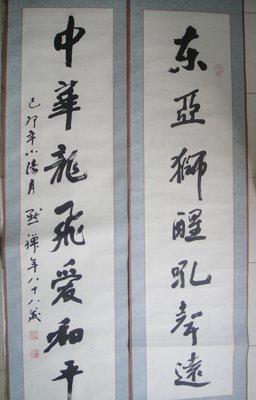 东亞獅醒吼聲遠
中華龍飛愛和平
己卯年小陽月 默禪年八十八歲